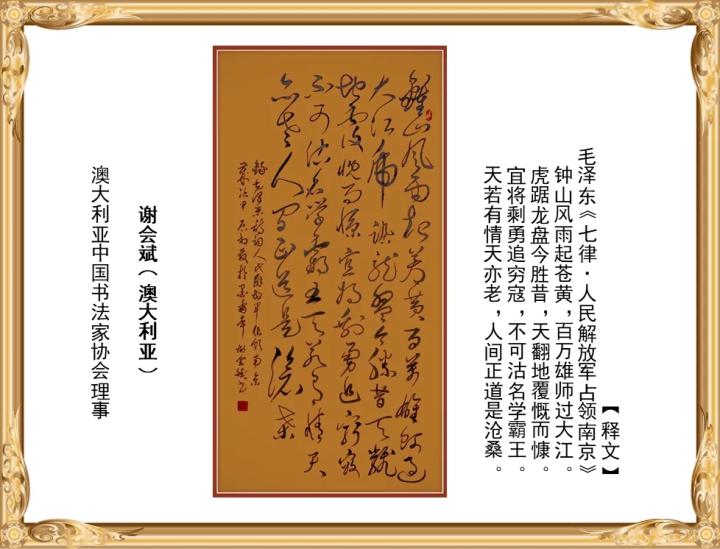 【释文】
毛泽东《七律·人民解放军占领南京》
钟山风雨起苍黄，百万雄师过大江。
虎踞龙盘今胜昔，天翻地覆慨而慷。
宜将剩勇追穷寇，不可沽名学霸王。
天若有情天亦老，人间正道是沧桑。
鍾山风雨起苍黄百万雄师过
大江虎踞龙盘今胜昔天翻
地覆慨而慷宜将剩勇追穷寇
不可沽名学霸王天若有情天
亦老人间正道是沧桑
谢会斌（澳大利亚）
澳大利亚中国书法家协会理事